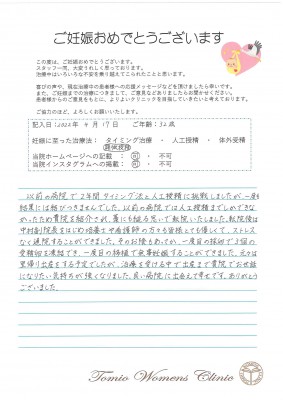 ご妊娠おめでとうございます
この度は、ご妊娠おめでとうございます。
スタッフ一同、大変うれしく思っております。
治療中はいろいろな不安を乗り越えてこられたことと思います。
喜びの声や、現在治療中の患者様への応援メッセージなどを頂けましたら幸いです。
また、ご妊娠までの治療につきまして、ご意見などがありましたらお聞かせください。
患者様からのご意見をもとに、よりよいクリニックを目指していきたいと考えております。
ご協力のほど、よろしくお願いいたします。
記入日:2022年 4月17日 ご年齢:32歳
妊娠に至った治療法: タイミング治療 ・ 人工授精 ・ 体外受精
顕微授精
当院ホームページへの記載 : 可 ・ 不可
当院インスタグラムへの掲載: 可 ・ 不可
以前の病院で2年間タイミング法と人工授精に挑戦しましたが一度も
結果には結びつきませんでした。以前の病院では人工授精までしかできな
かったため貴院を紹介され、藁にも縋る思いで転院いたしました。転院後は
中村副院長をはじめ培養士や看護師の方々も皆様とても優しくて、ストレス
なく通院することができました。そのお陰もあってか、一度目の採卵で3個の
受精卵を凍結でき、一度目の移植で無事妊娠することができました。元々は
里帰り出産をする予定でしたが、治療を受ける中で出産まで貴院でお世話
になりたい気持ちが強くなりました。良い病院に出会えて幸せです。ありがとう
ございました。
Tomio Womens Clinic